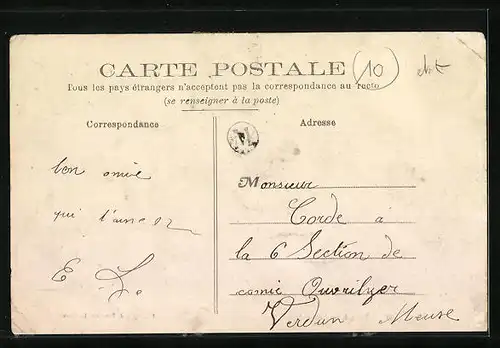 CARTE POSTALE (10)
Tous les pays étrangers n'acceptent pas la correspondance au recto
(se renseigner à la poste)
Correspondance
Adresse
ton amie
qui t'aime
E. L.
Monsieur
Corde à
la 6 Section de
comie Ouvrilyer
Verdun Meuse